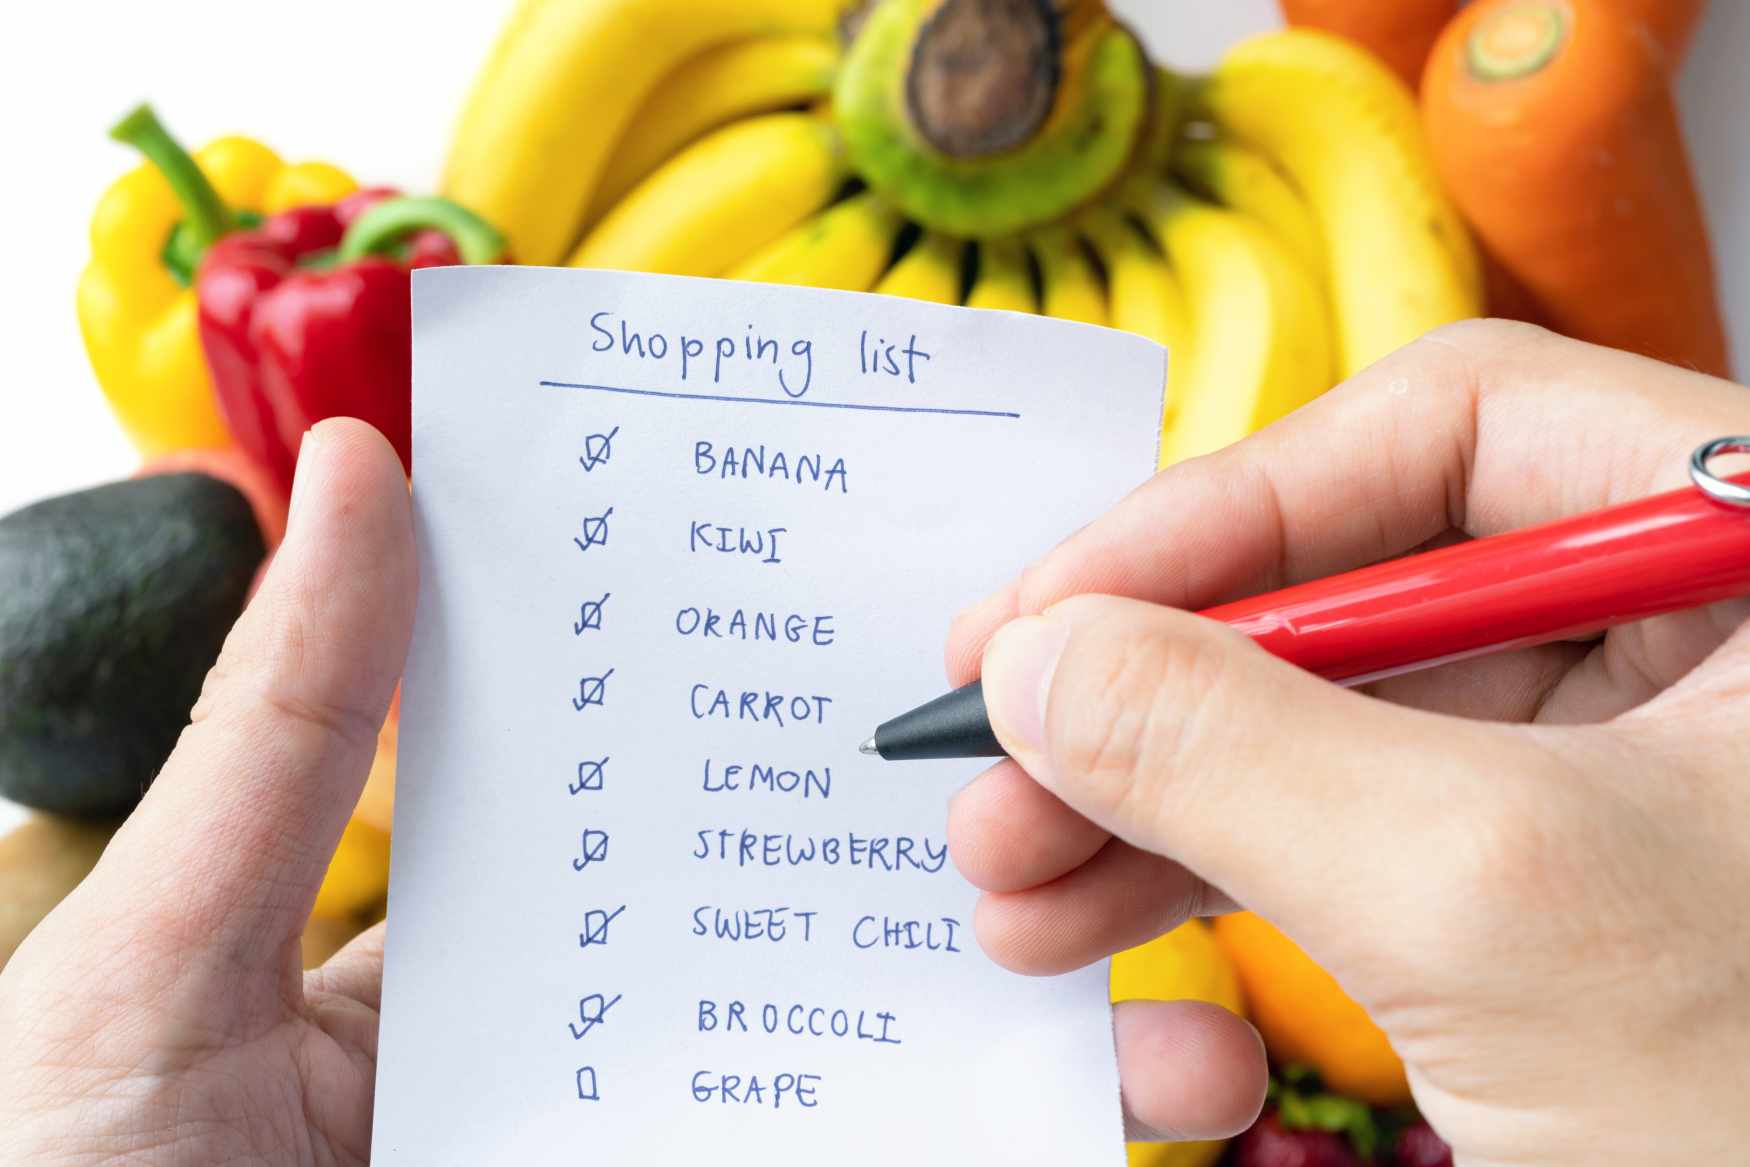 Shopping list
BANANA
KIWI
ORANGE
CARROT
LEMON
STREWBERRY
SWEET CHILI
BROCCOLI
GRAPE